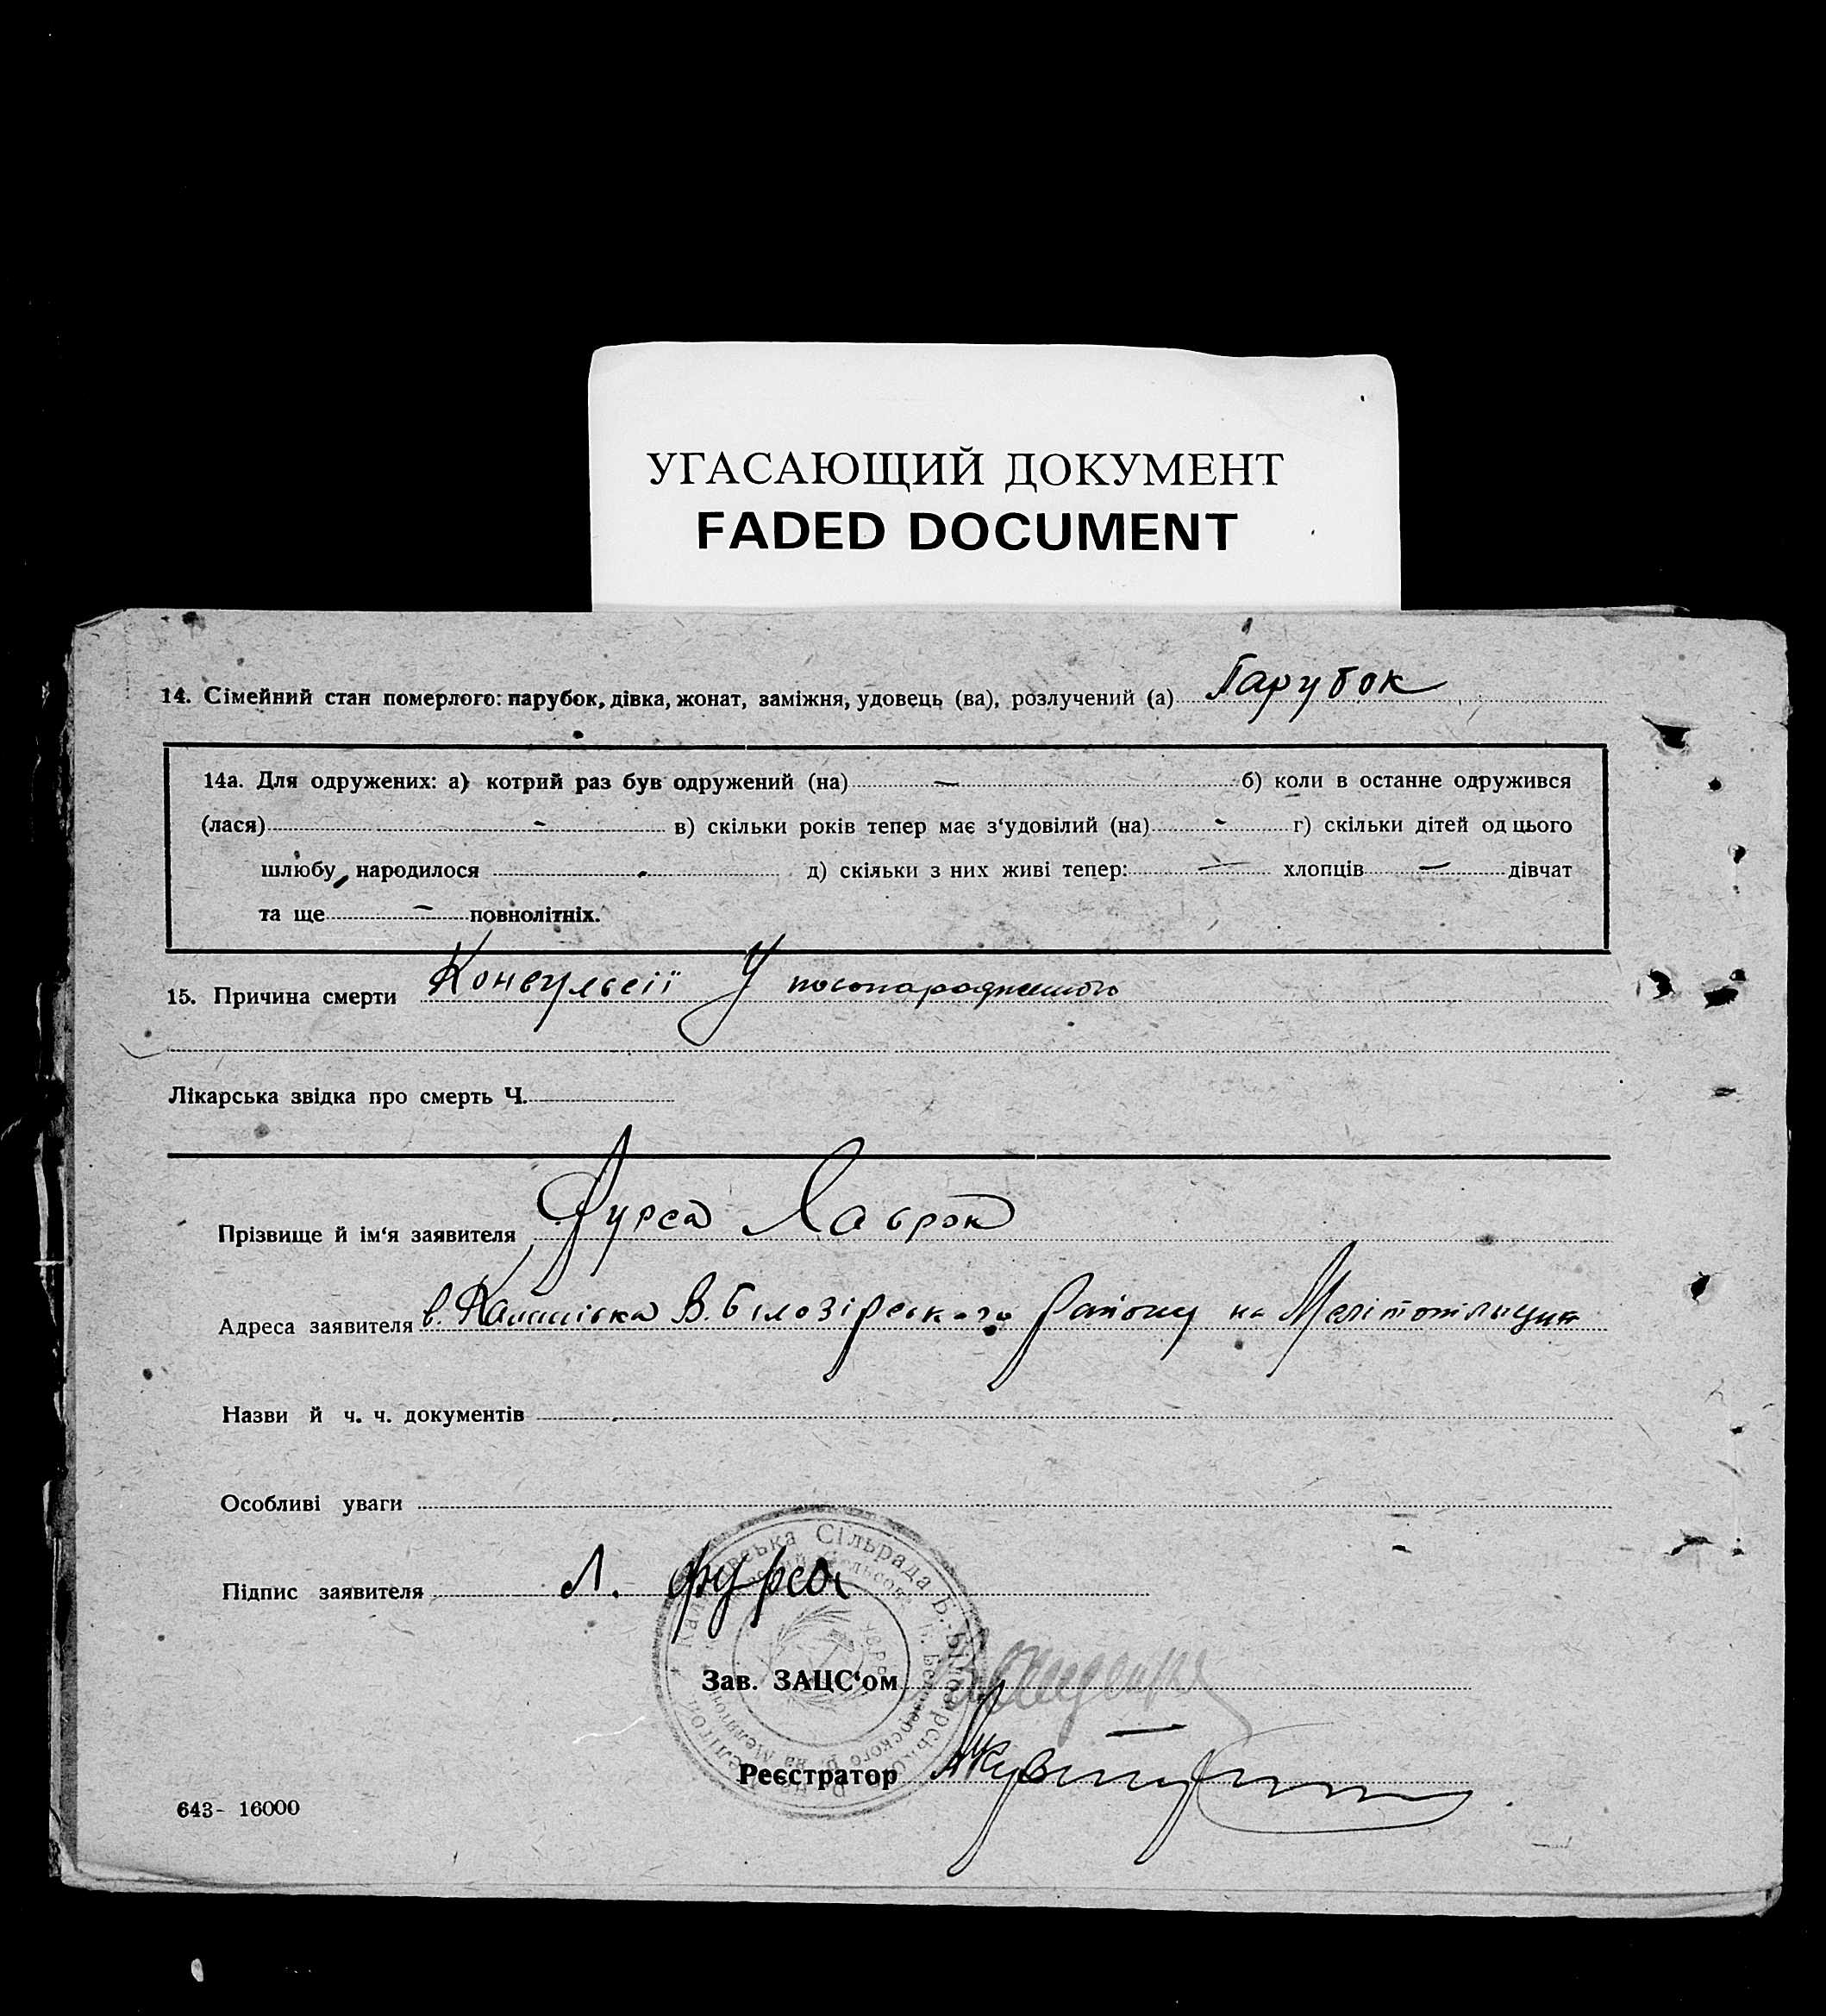 УГАСАЮЩИЙ ДОКУМЕНТ
FADED DOCUMENT
14. Сімейний стан померлого: парубок, дівка, жонат, заміжня, удовець (ва), розлучений (а) Парубок
14а. Для одружених: а) котрий раз був одружений (на) — б) коли в останне одружився
(лася) - в) скільки років тепер має з‘удовілий (на) - г) скільки дітей од цього
шлюбу, народилося д) скільки з них живі тепер: — хлопців — дівчат
та ще — повнолітніх.
15. Причина смерти Конвульсії У
Лікарська звідка про смерть Ч.
Прізвище й ім‘я заявителя Фурса Лаврон
Адреса заявителя В. Білозірського Району на
Назви й ч. ч. документів
Особливі уваги
Підпис заявителя Л. Фурса
Сільрада
Зав. ЗАЦС‘ом
Реєстратор
643- 16000